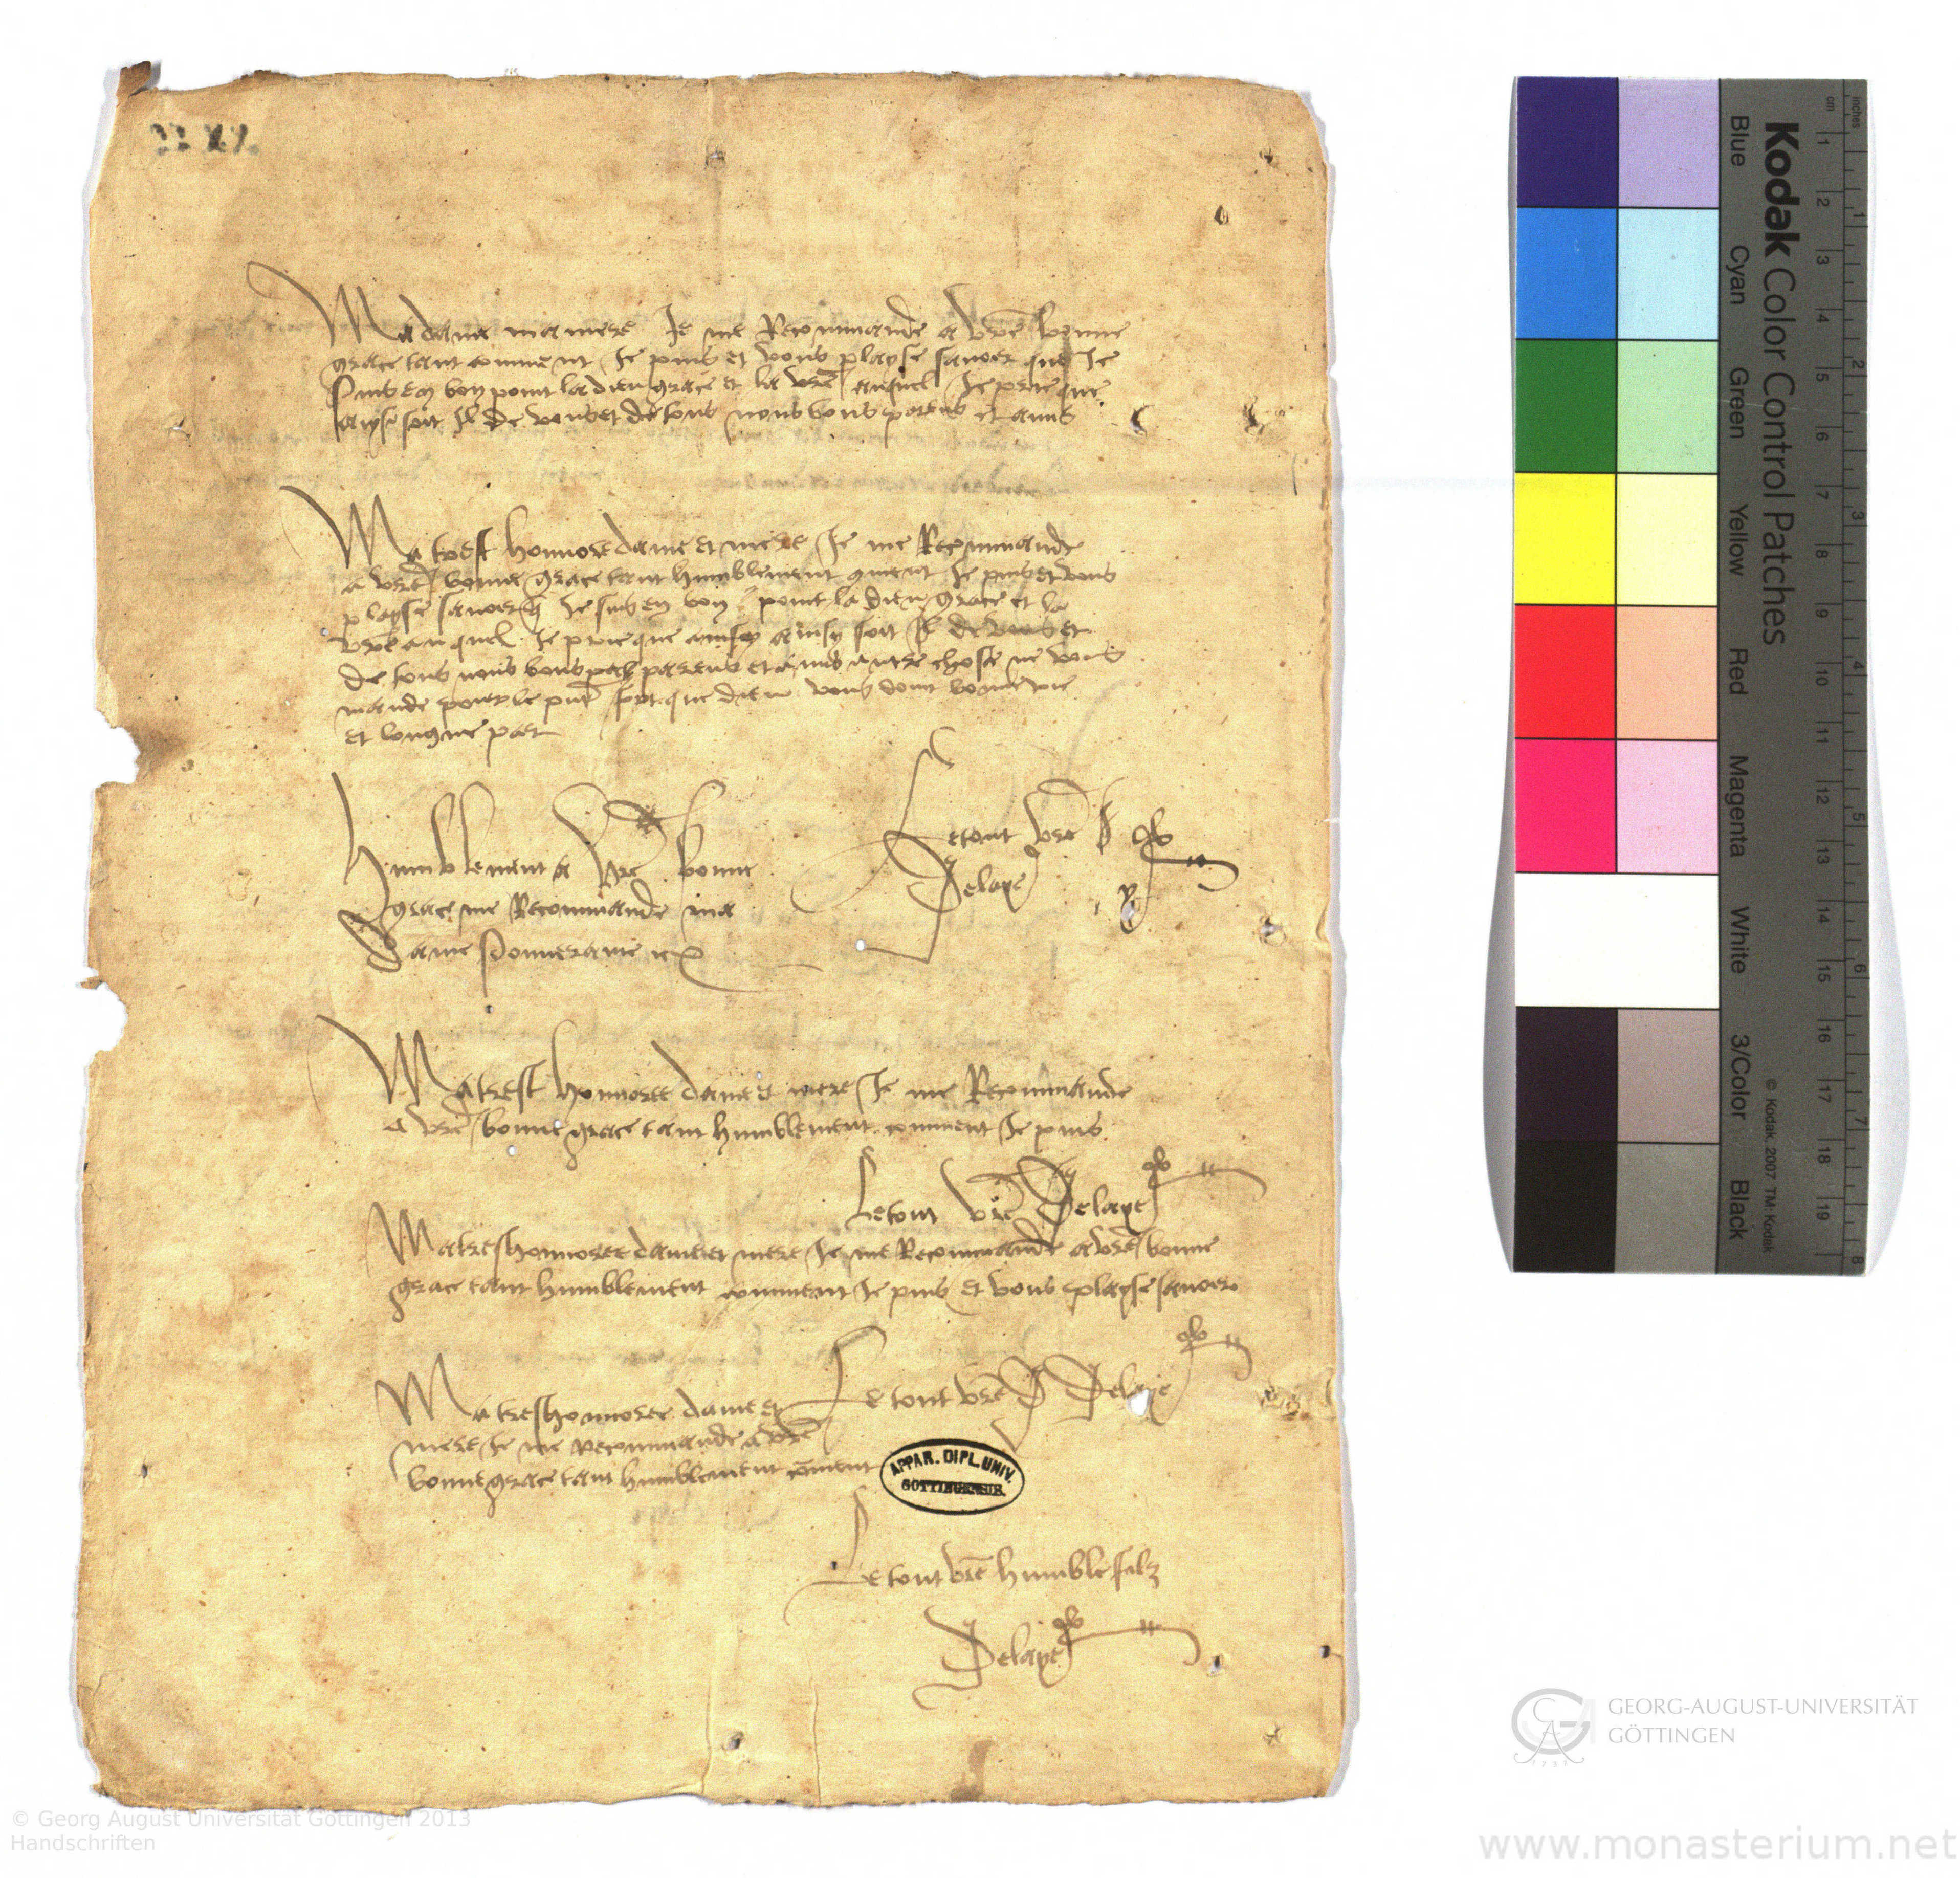 Madame ma mere Je me Recommande a vre bonne
grace tant comment Je puis et vous playse savoer que Je
suis en bon point la dieu grace et la vre auquel Je prie que
aynsi soit Il de vous et de tous nous bons parens et amis
Ma trest honnore dame et mere Je me Recommande
a vre bonne grace tant humblement coment Je puis et vous
playse savoer q Je suis en bon point la dieu grace et la
vre au quel Je prie que ainsy soit Il de vous et
de tous nous bons parens et amis autre chose ne vous
mande pour le pnt fort que dieu vous doint bonne vie
et longue
Humblement a vre bonne
grace me Recommande ma
dame
Le tout vre
Delaye
Ma trest honnoree dame et mere Je me Recommande
a vre bonne grace tant humblement comment Je puis
Le tout vre Delaye
Ma tres honnoree dame et mere Je me Recommande a vre bonne
grace tant humblement comment Je puis et vous playse savoer
Le tout vre Delaye
Ma tres honnoree dame et
mere Je me recommande a vre
bonne grace tant humblement coment
APPAR. DIPL. UNIV.
GOTTINGENSIS.
Le tout vre humble filz
Delaye
Kodak Color Control Patches
Blue Cyan Green Yellow Red Magenta White 3/Color Black
© Kodak, 2007 TM: Kodak
inches 1 2 3 4 5 6 7 8
cm 1 2 3 4 5 6 7 8 9 10 11 12 13 14 15 16 17 18 19
GEORG-AUGUST-UNIVERSITÄT
GÖTTINGEN
© Georg August Universität Göttingen 2013
Handschriften
www.monasterium.net